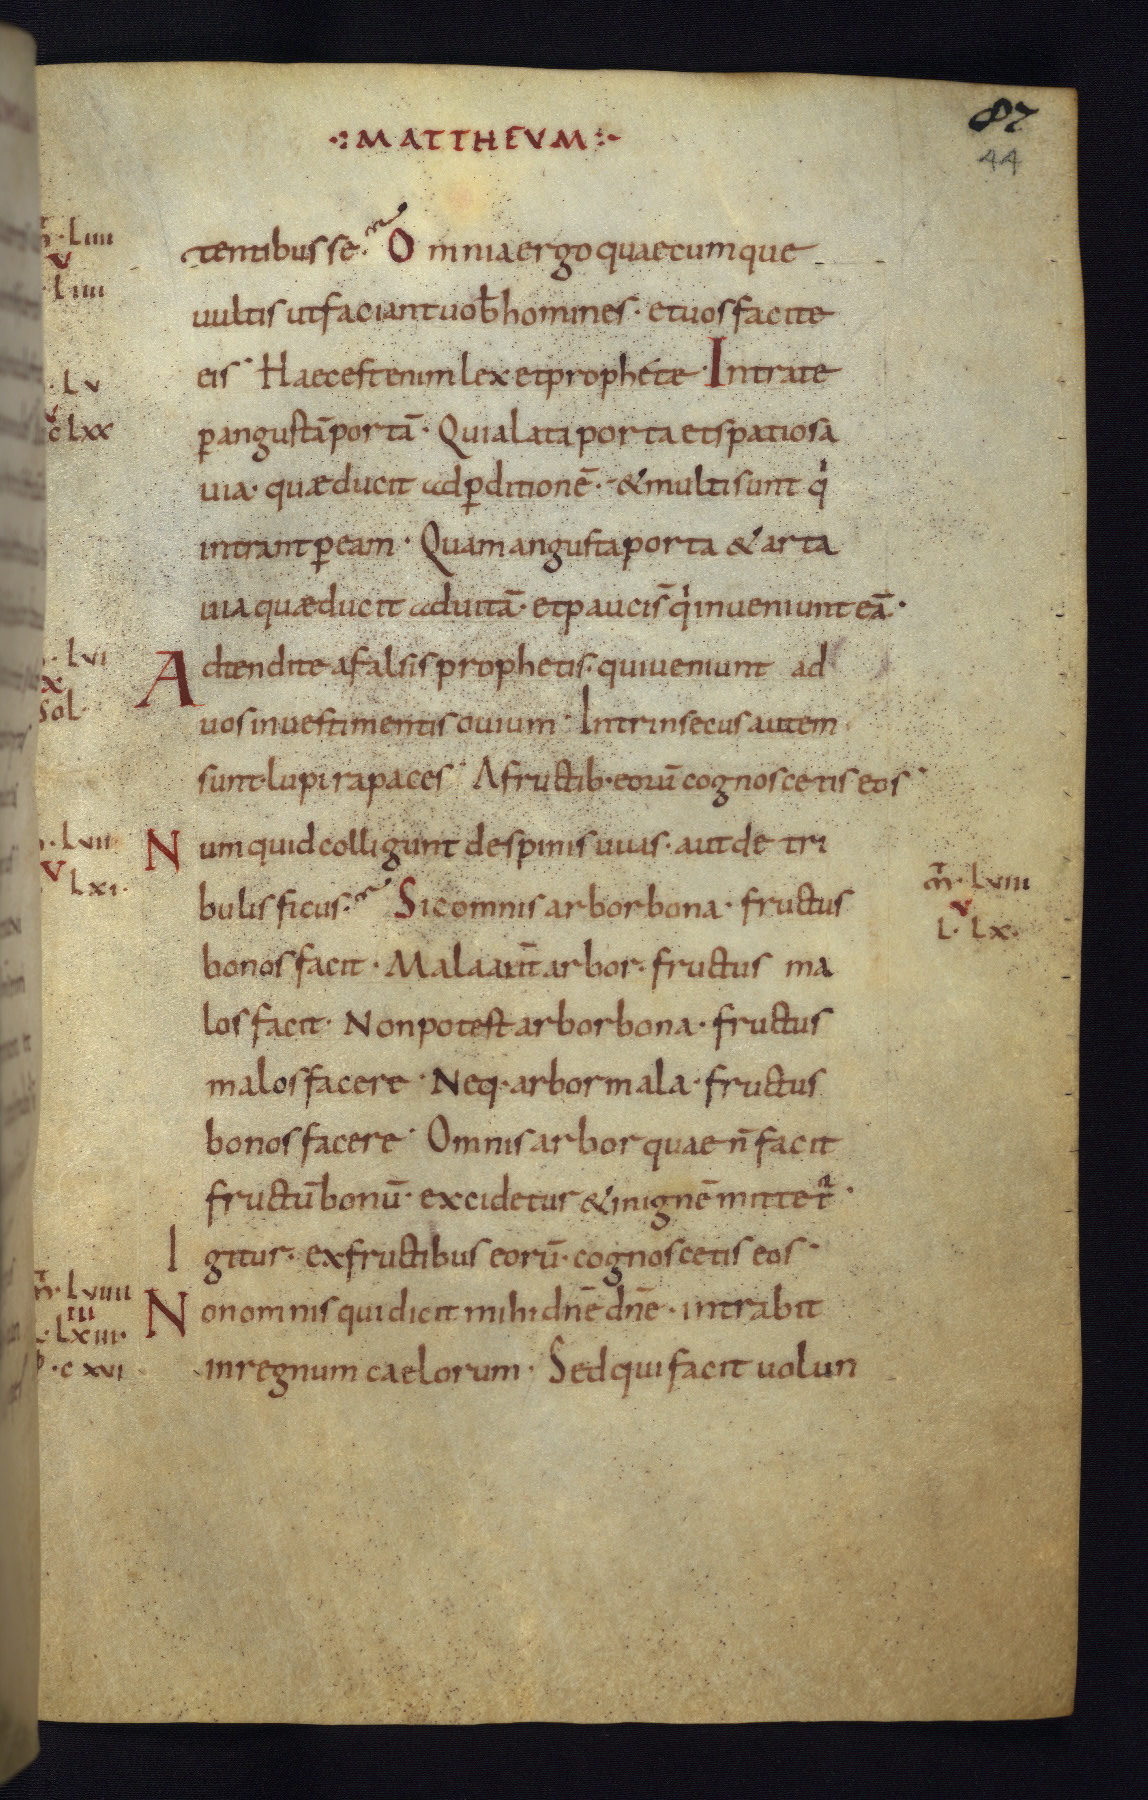 ·:MATTHEVM:·
87
44
tentibus se. Omnia ergo quaecumque
uultis ut faciant uob̄ homines · et uos facite
eis · Haec est enim lex et prophete · Intrate
p̄ angustā portā · Quia lata porta et spatiosa
uia · quæ ducit ad p̄ditionē · & multi sunt qͥ
intrant p̄ eam · Quam angusta porta & arta
uia quæ ducit ad uitā · et pauci s̄ qͥ inueniunt eā ·
Adtendite a falsis prophetis · qui ueniunt ad
uos in uestimentis ouium · Intrinsecus autem
sunt · lupi rapaces · A fructib · eorū cognoscetis eos ·
Numquid colligunt de spinis uuas · aut de tri
bulis ficus · Sic omnis arbor bona · fructus
bonos facit · Mala aūt arbor · fructus ma
los facit · Non potest arbor bona · fructus
malos facere · Neq · arbor mala · fructus
bonos facere · Omnis arbor quae n̄ facit
fructū bonū · excidetur & in ignē mittet᷑ ·
Igitur · ex fructibus eorū · cognoscetis eos ·
Non omnis qui dicit mihi dn̄e dn̄e · intrabit
in regnum caelorum · Sed qui facit uolun
· Liiii
v
· Liiii
· Lv
v
c Lxx
· Lvi
x
Sol ·
· Lvii
v
Lxi ·
m̄ · Lviii
v
L · Lx ·
m̄ · Lviiii
iii
· Lxiii ·
· c xxvi